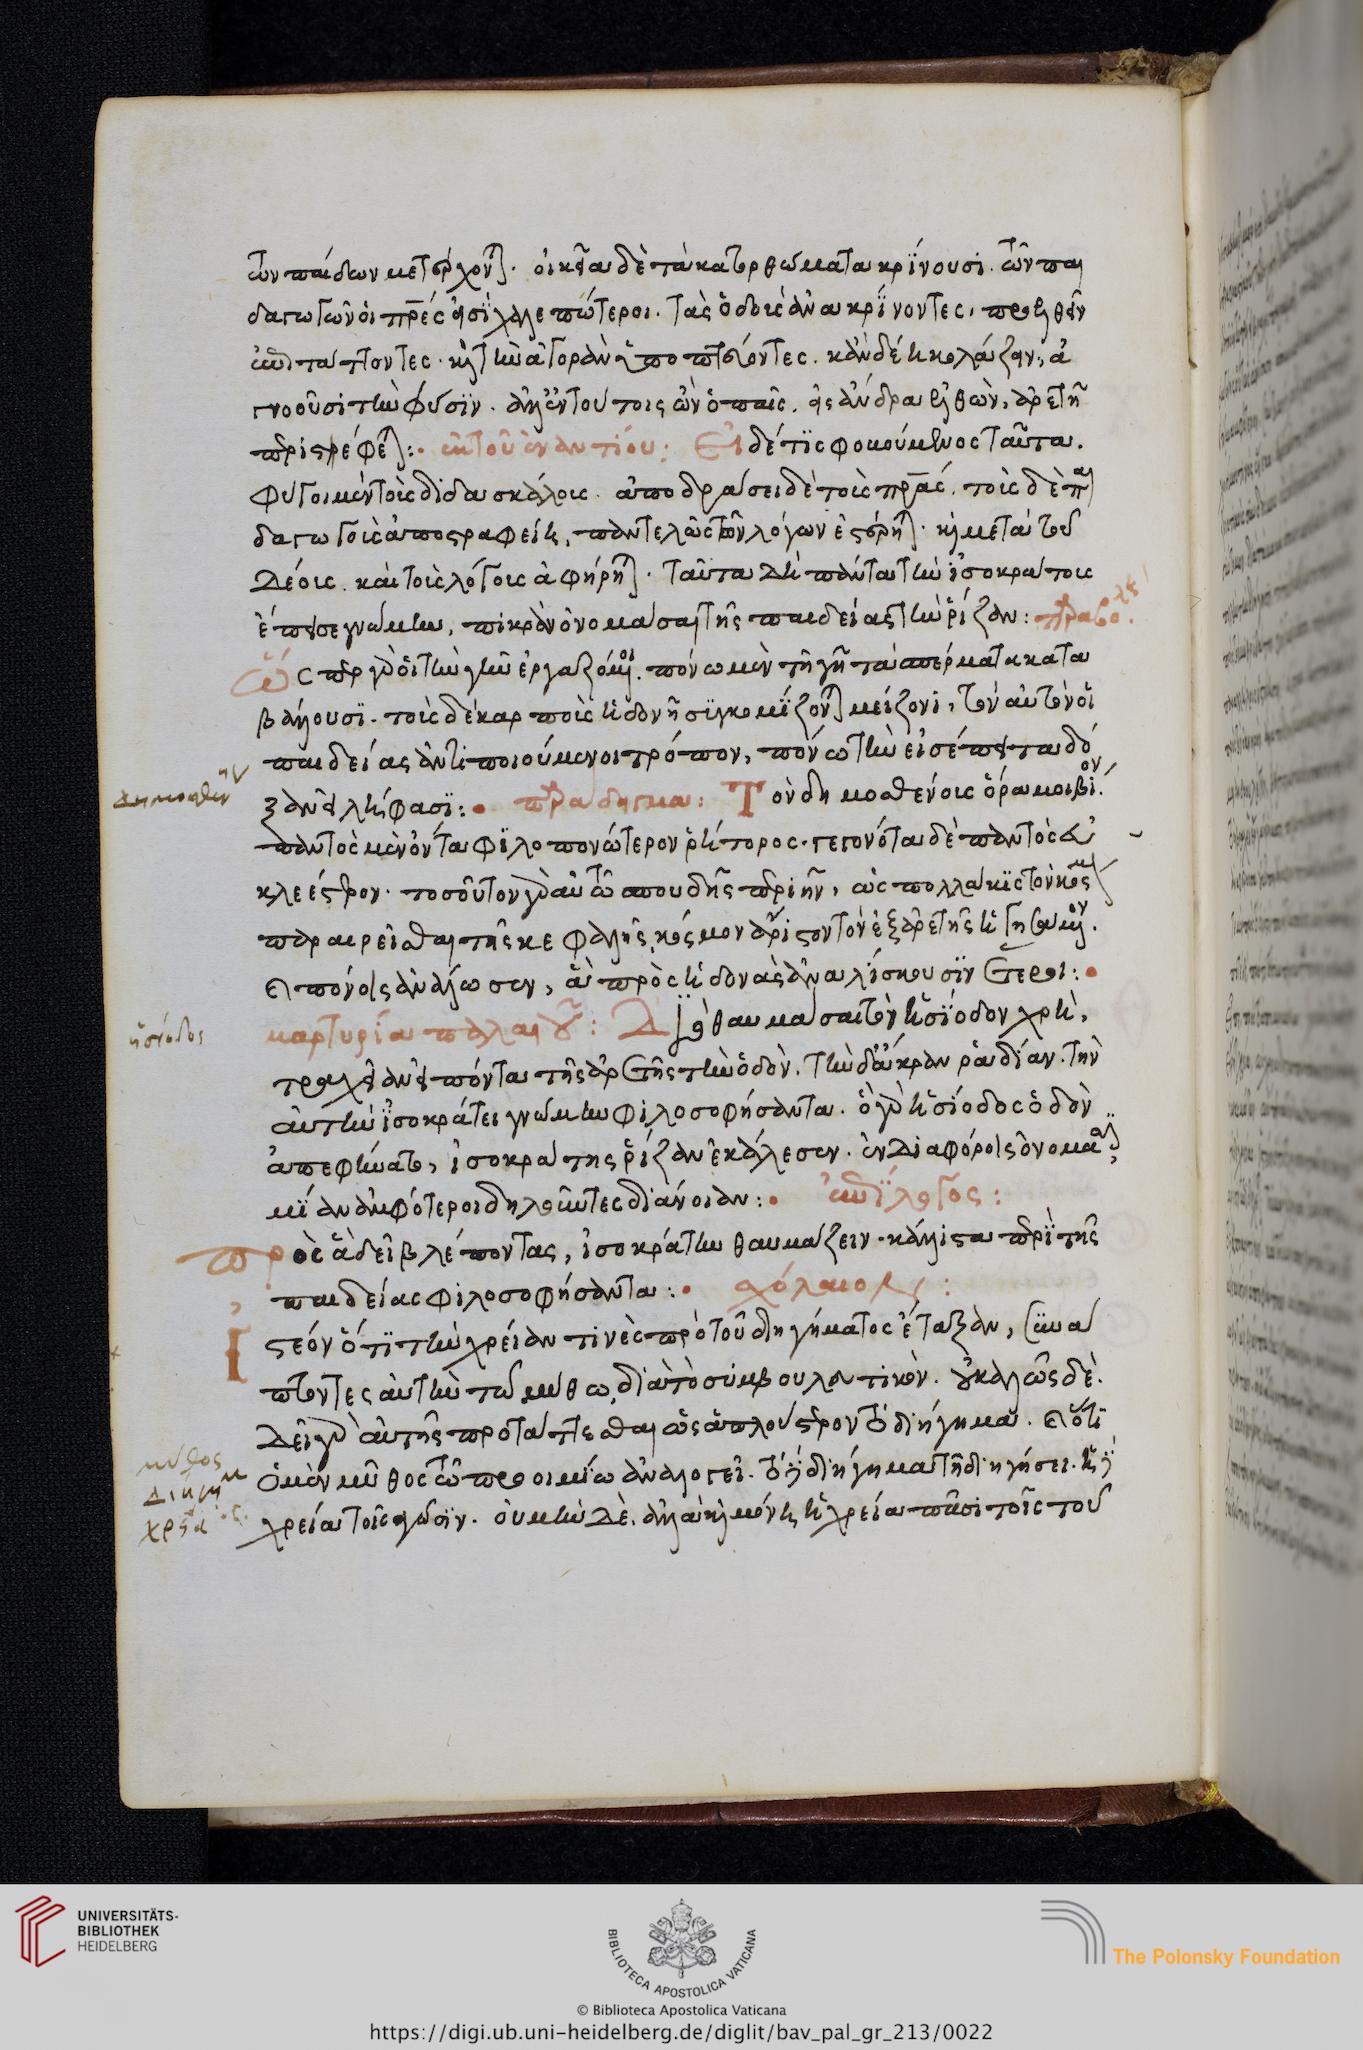 τῶν παίδων μετέρχονται. οἰκεῖα δὲ τὰ κατορθώματα κρίνουσι. τῶν παι
δαγωγῶν οἱ πρές εἰσὶ χαλεπώτεροι. τὰς ὁδοὺς ἀνακρίνοντες, προελθεῖν
ἐπιτάττοντες. καὶ τὴν ἀγορὰν ὑποπτεύοντες. κἂν δέῃ κολάζειν, ἀ
γνοοῦσι τὴν φύσιν. ἀλλ' ἐν τούτοις ὢν ὁ παῖς, εἰς ἄνδρα ἐλθὼν, ἀρετῇ
περιστρέφεται: ἐκ τοῦ ἐναντίου: Εἰ δέ τις φοβούμενος ταῦτα.
φύγοι μὲν τοὺς διδασκάλους. ἀποδράσει δὲ τοὺς πρας. τοὺς δὲ παι
δαγωγοὺς ἀποστραφείη, παντελῶς τῶν λόγων ἐστέρηται. καὶ μετὰ τοῦ
δέους. καὶ τοὺς λόγους ἀφῄρηται. ταῦτα δὴ πάντα τὴν ἰσοκράτους
ἔπεισε γνώμην, πικρὰν ὀνομάσαι τῆς παιδείας τὴν ῥίζαν: παραβολή
Ὥσπερ γὰρ οἱ τὴν γῆν ἐργαζόμενοι. πόνω μὲν τῇ γῇ τὰ σπέρματα κατα
βάλλουσι. τοὺς δὲ καρποὺς ἡδονῇ συγκομίζονται μείζονι, τὸν αὐτὸν οἱ
παιδείας ἀντιποιούμενοι τρόπον, πόνω τὴν εἰσέπειτα δό
ξαν εἰλήφασι: παράδειγμα: Τὸν δημοσθένους ὅρα μοι βίον.
παντὸς μὲν ὄντα φιλοπονώτερον ῥήτορος. γεγονότα δὲ παντὸς εὐ
κλεέστερον. τοσοῦτον γὰρ αὐτῶ σπουδῆς περιῆν, ὡς πολλάκις τὸν κόσμον
παραιρεῖσθαι τῆς κεφαλῆς, κόσμον ἄριστον τὸν ἐξ ἀρετῆς ἡγησάμενον.
καὶ πόνοις ἀνάλωσεν, ἃ πρὸς ἡδονὰς ἀναλίσκουσιν ἕτεροι:
μαρτυρία παλαιοῦ: Διὸ θαυμάσαι τὸν ἡσίοδον χρὴ,
τραχεῖαν εἰπόντα τῆς ἀρετῆς τὴν ὁδὸν. τὴν δ' ἄκραν ῥαδίαν. τὴν
αὐτὴν ἰσοκράτει γνώμην φιλοσοφήσαντα. ὃ γὰρ ἡσίοδος ὁδὸν
ἀπεφήνατο, ἰσοκράτης ῥίζαν ἐκάλεσεν. ἐν διαφόροις ὀνόμασι,
μίαν ἀμφότεροι δηλοῦντες διάνοιαν: ἐπίλογος:
πρὸς ἃ δεῖ βλέποντας, ἰσοκράτην θαυμάζειν. κάλλιστα περὶ τῆς
παιδείας φιλοσοφήσαντα: σχόλιον:
Ἰστέον ὅτι τὴν χρείαν τινὲς πρὸ τοῦ διηγήματος ἔταξαν, συνά
πτοντες αὐτὴν τῶ μύθω, διὰ τὸ συμβουλευτικὸν. οὐ καλῶς δὲ.
δεῖ γὰρ αὐτῆς προτάττεσθαι ὡς ἁπλούστερον τὸ διήγημα. καὶ ὅτι
ὁ μὲν μῦθος τῶ προοιμίω ἀναλογεῖ. τὸ δὲ διήγημα τῇ διηγήσει. ἡ δὲ
χρεία τοῖς ἀγῶσιν. οὐ μὴν δὲ, ἀλλὰ καὶ μόνη ἡ χρεία πᾶσι τοῖς τοῦ
δημοσθέν
ἡσίοδος
μῦθος
διήγημ
χρεία
UNIVERSITÄTS-
BIBLIOTHEK
HEIDELBERG
BIBLIOTECA APOSTOLICA VATICANA
The Polonsky Foundation
© Biblioteca Apostolica Vaticana
https://digi.ub.uni-heidelberg.de/diglit/bav_pal_gr_213/0022